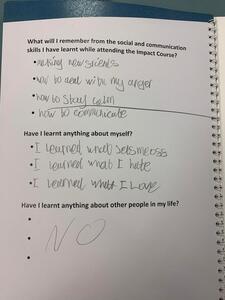 What will I remember from the social and communication
skills I have learnt while attending the Impact Course?
• making new frieds
• how to deal with my anger
• how to stay calm
• how to communicate
Have I learnt anything about myself?
• I learned what
• I learned what I hate
• I learned what I love
Have I learnt anything about other people in my life?
•
•
•
NO